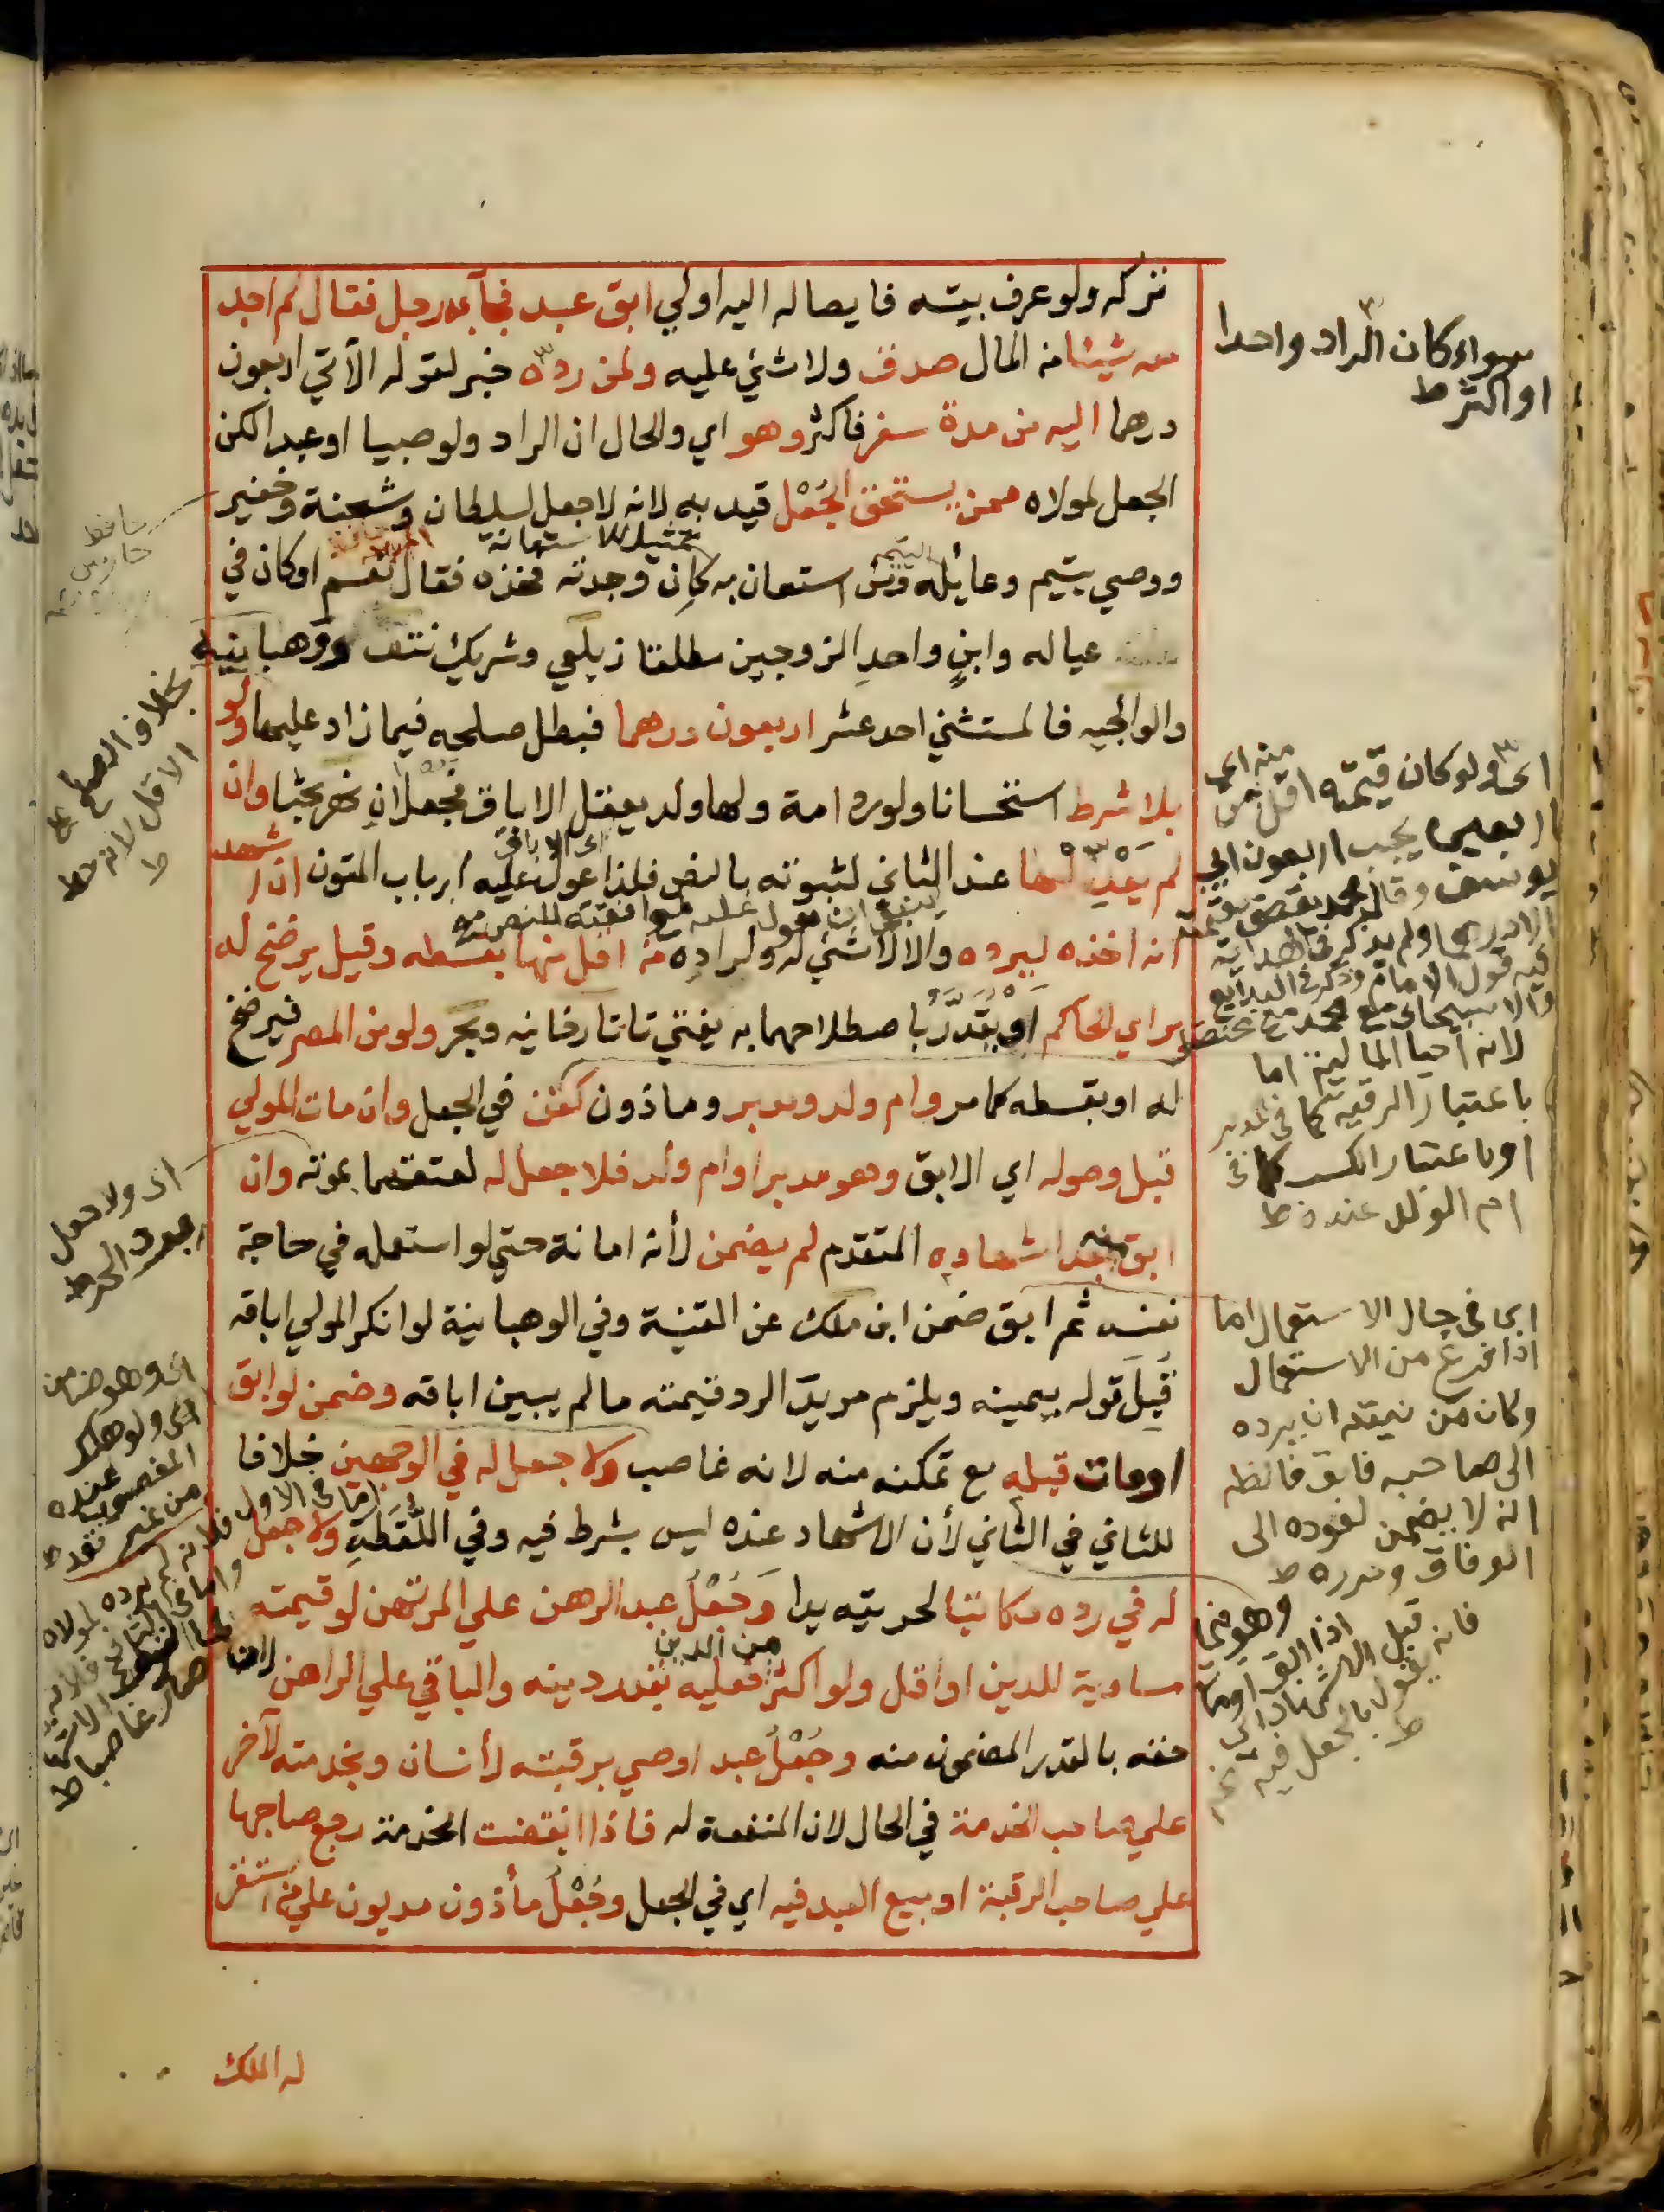 تركه ولو عرف بيته فايصاله اليه اولي ابق عبد فجآ به رجل فقال لم اجد
معه شيئا من المال صدق ولا شئ عليه ولمن رده خبر لقوله الآتي اربعون
درهما اليه من مدة سفر فاكثر وهو اي والحال ان الراد ولو صبيا او عبدا لكن
الجعل لمولاه ممن يستحق الجُعْل قيد به لانه لا جعل لسلطان وشحنة وخفير
ووصي يتيم وعائله ومن استعان به كان وجدته فخذه فقال نعم او كان في
عياله وابنٍ واحدِ الزوجين مطلقا زيلعي وشريك نتف ووهبانيه
والوالجيه فالمستثني احد عشر اربعون درهما فبطل صلحه فيما زاد عليها ولو
بلا شرط استحسانا ولو رد امة ولها ولد يعقل الاباق فجعلان نهر بحثا وان
لم يَعْدِلها عند الثاني لثبوته بالنص فلذا عول عليه ارباب المتون ان اشهد
انه اخذه ليرده والا لا شئ له ولراده من اقل منها بقسطه وقيل يرضخ له
براي الحاكم او يُقَدَّرُ باصطلاحهما به يفتي تاتارخانيه وبحر ولو من المصر فيرضخ
له او بقسطه كما مر وام ولد ومدبر وماذون كقن في الجعل وان مات المولي
قبل وصوله اي الابق وهو مدبر او ام ولد فلا جعل له لعتقهما بموته وان
ابق منه بعد اشهاده المتقدم لم يضمن لأنه امانة حتي لو استعمله في حاجة
نفسه ثم ابق ضمن ابن ملك عن القنية وفي الوهبانية لو انكر المولي اباقه
قُبِلَ قوله بيمينه ويلزم مريدَ الرد قيمته ما لم يبين اباقه وضمن لو ابق
او مات قبله مع تمكنه منه لانه غاصب ولا جعل له في الوجهين خلافا
للثاني في الثاني لأن الاشهاد عنده ليس بشرط فيه وفي اللُّقَطَةِ ولا جعل
له في رده مكاتبا لحريته يدا وَجُعْلُ عبد الرهن علي المرتهن لو قيمته
مساوية للدين او اقل ولو اكثر من الدين فعليه بقدر دينه والباقي علي الراهن لان
حقه بالقدر المضمون منه وجُعْلُ عبد اوصي برقبته لأنسان وبخدمته لآخر
علي صاحب الخدمة في الحال لان المنفعة له فاذا انقضت الخدمة رجع صاحبها
علي صاحب الرقبة او بيع العبد فيه اي في الجعل وجُعْلُ مأذون مديون علي من استقر
له الملك
سواء كان الراد واحدا
او اكثر ط
اى ولو كان قيمته اقل من
اربعين يجب اربعون
لانه احيا المالية اما
باعتبار الرقبة كما في المدبر
او باعتبار الكسب كما فى
ام الولد عنده ط
اى فى حال الاستعمال اما
اذا فرغ من الاستعمال
وكان من نيته ان يرده
الى صاحبه فابق فالظ
انه لا يضمن لعوده الى
الوفاق وحرره ط
بخلاف الصلح على
الاقل لانه حط
ط
اى ولا جعل